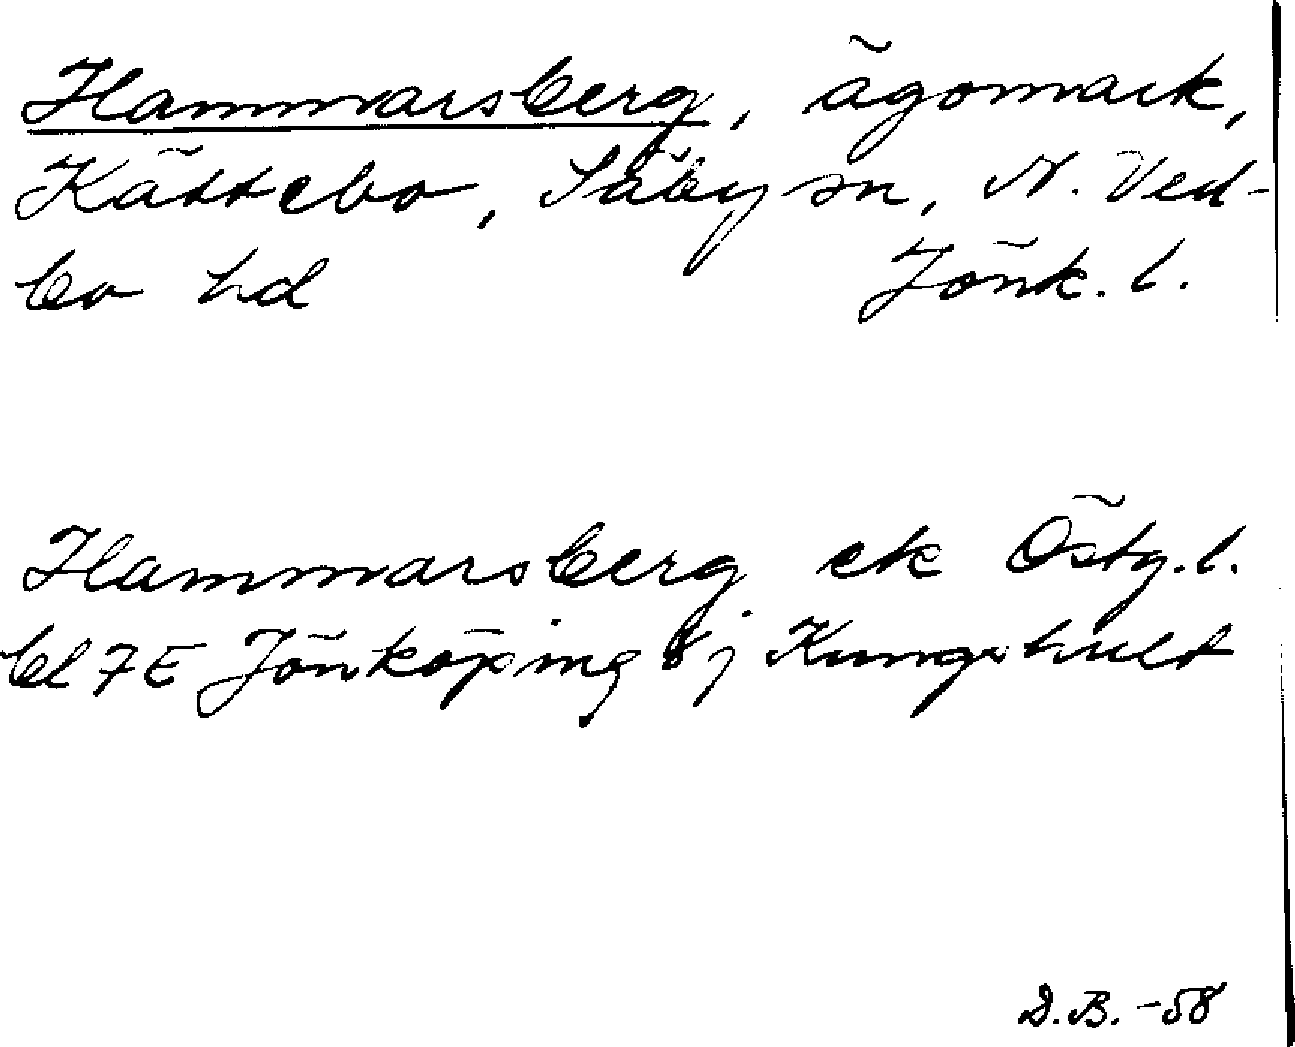 Hammarsberg, ägomark,
Kättebo, Säby sn, N. Ved-
bo hd Jönk. l.
Hammarsberg ek Östg. l.
bl 7E Jönköping s j Kungshult
D.B. -58